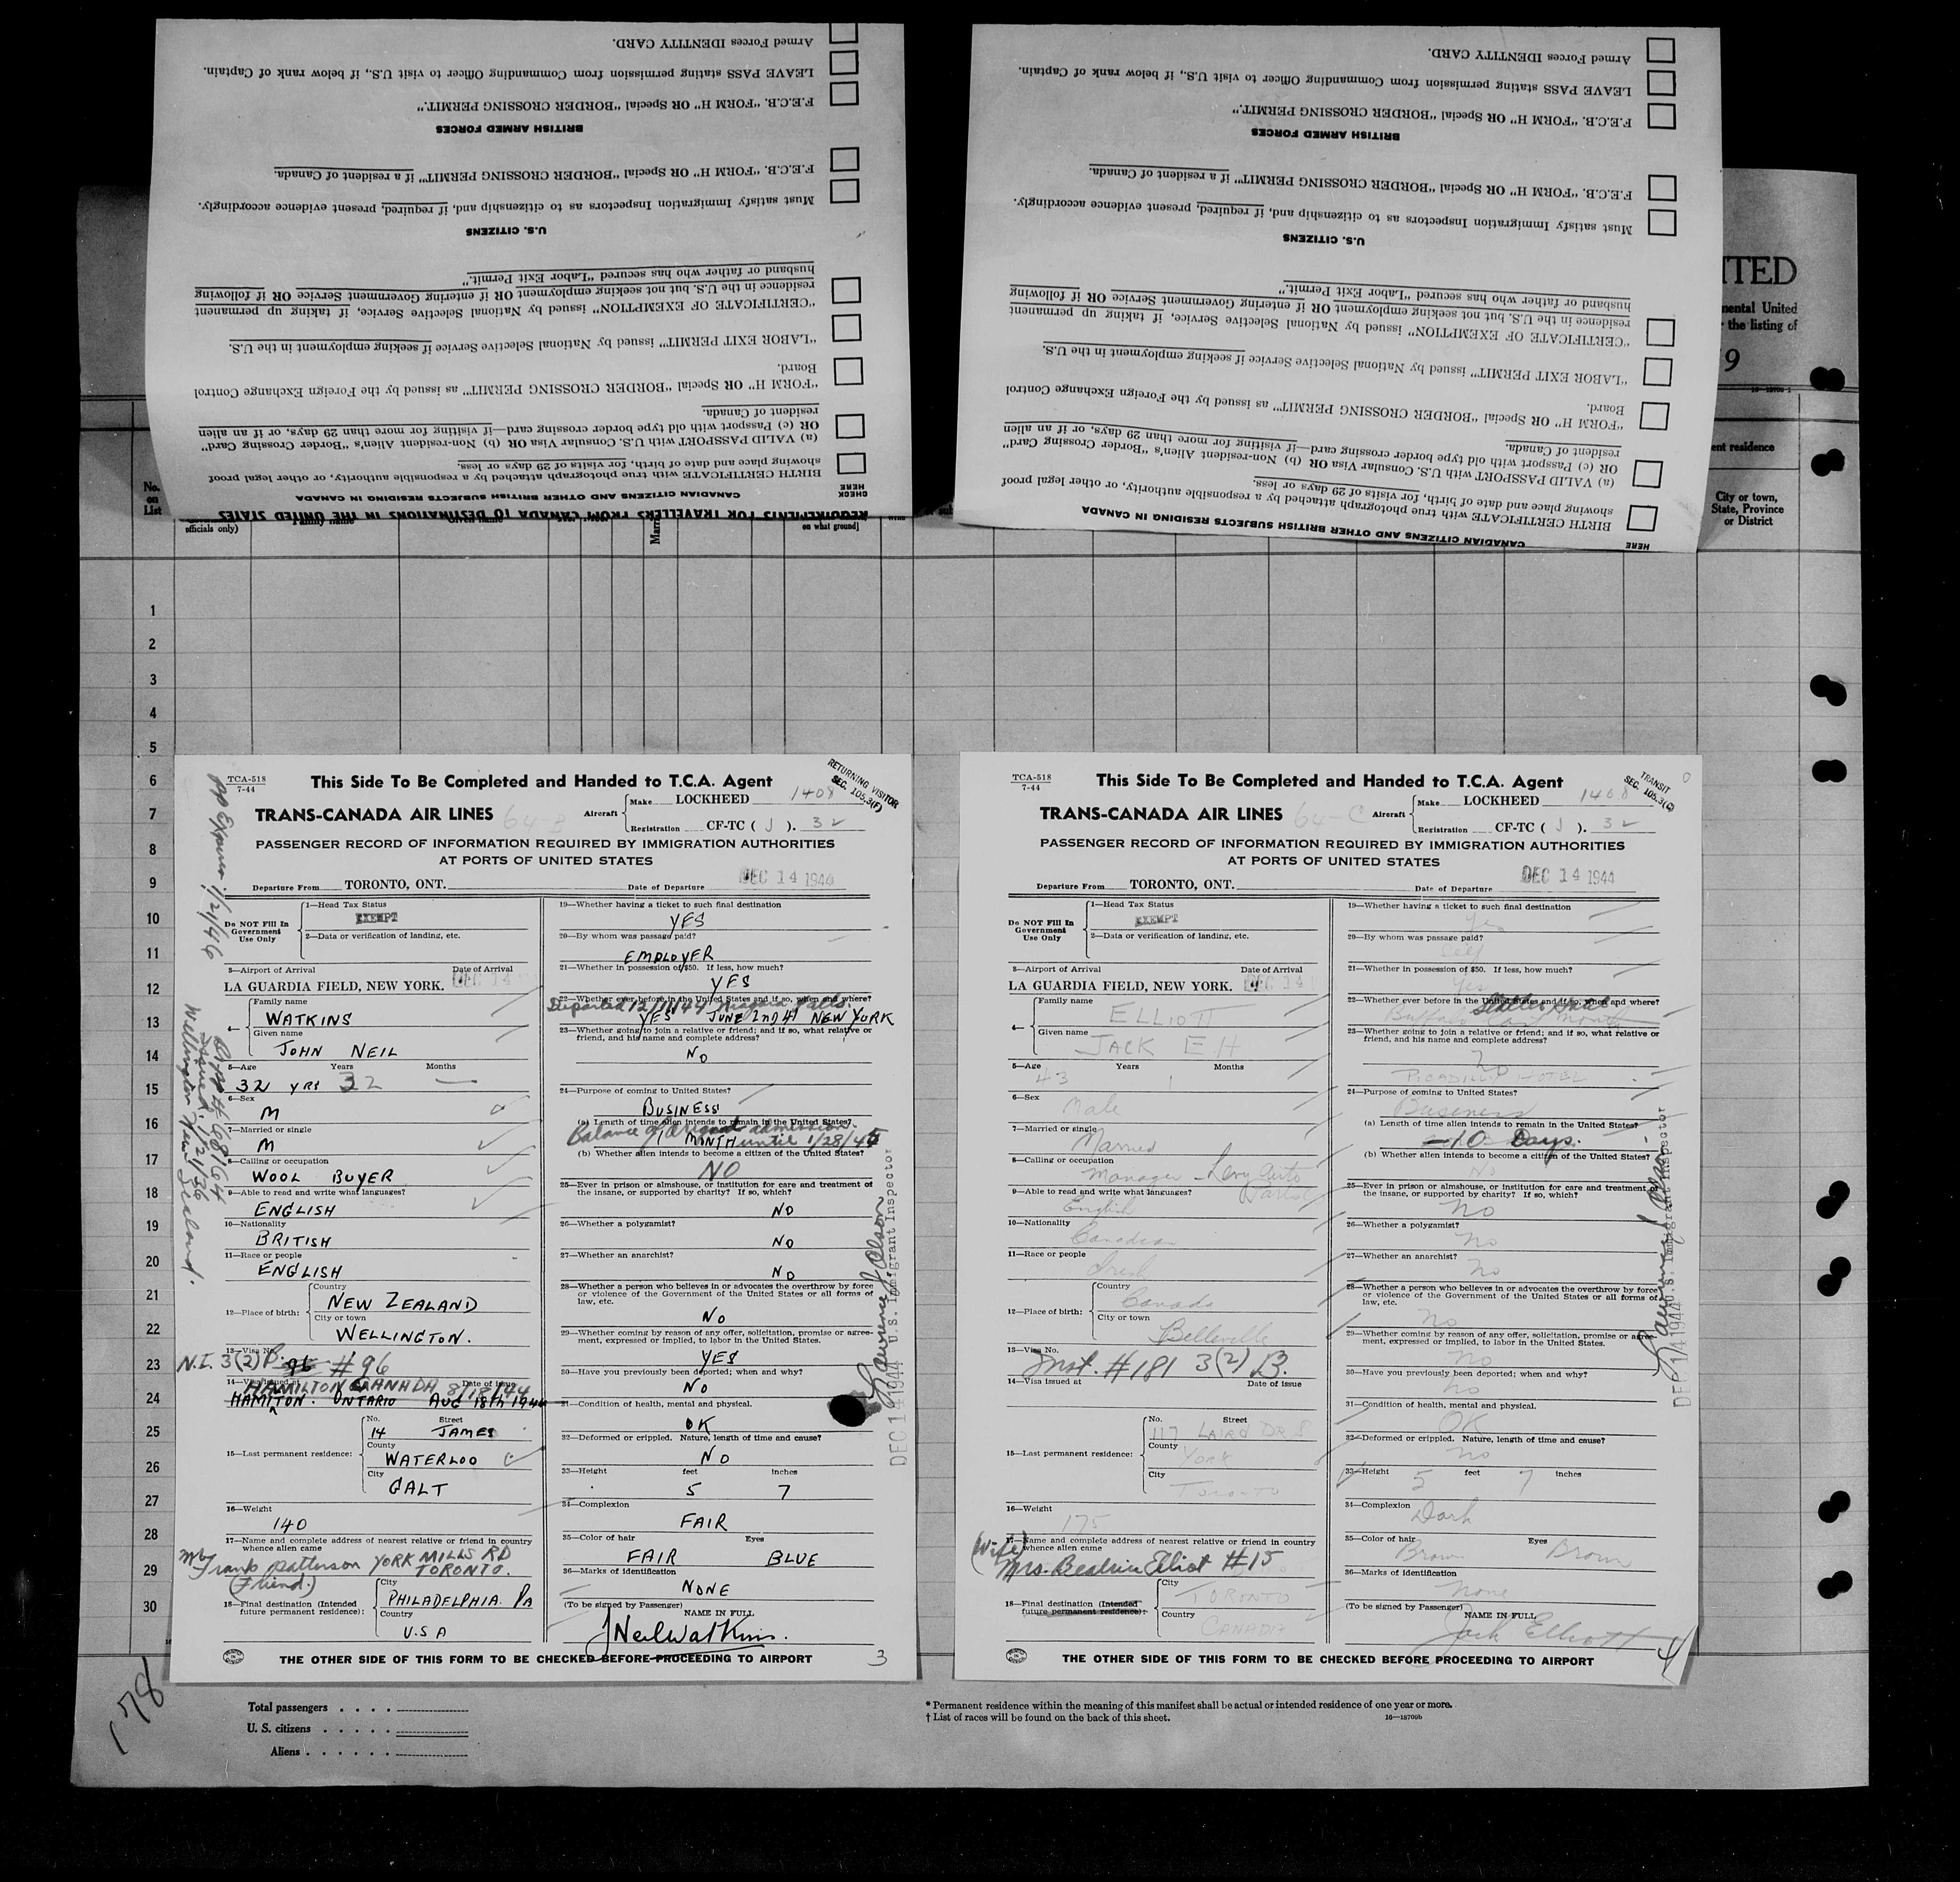 REQUIREMENTS FOR TRAVELLERS FROM CANADA TO DESTINATIONS IN THE UNITED STATES
CHECK HERE
CANADIAN CITIZENS AND OTHER BRITISH SUBJECTS RESIDING IN CANADA
BIRTH CERTIFICATE with true photograph attached by a responsible authority, or other legal proof
showing place and date of birth, for visits of 29 days or less.
(a) VALID PASSPORT with U.S. Consular Visa OR (b) Non-resident Alien's "Border Crossing Card"
OR (c) Passport with old type border crossing card—if visiting for more than 29 days, or if an alien
resident of Canada.
"FORM H" OR Special "BORDER CROSSING PERMIT" as issued by the Foreign Exchange Control
Board.
"LABOR EXIT PERMIT" issued by National Selective Service if seeking employment in the U.S.
"CERTIFICATE OF EXEMPTION" issued by National Selective Service, if taking up permanent
residence in the U.S. but not seeking employment OR if entering Government Service OR if following
husband or father who has secured "Labor Exit Permit."
U.S. CITIZENS
Must satisfy Immigration Inspectors as to citizenship and, if required, present evidence accordingly.
F.E.C.B. "FORM H" OR Special "BORDER CROSSING PERMIT" if a resident of Canada.
BRITISH ARMED FORCES
F.E.C.B. "FORM H" OR Special "BORDER CROSSING PERMIT."
LEAVE PASS stating permission from Commanding Officer to visit U.S., if below rank of Captain.
Armed Forces IDENTITY CARD.
HERE
CANADIAN CITIZENS AND OTHER BRITISH SUBJECTS RESIDING IN CANADA
BIRTH CERTIFICATE with true photograph attached by a responsible authority, or other legal proof
showing place and date of birth, for visits of 29 days or less.
(a) VALID PASSPORT with U.S. Consular Visa OR (b) Non-resident Alien's "Border Crossing Card"
OR (c) Passport with old type border crossing card—if visiting for more than 29 days, or if an alien
resident of Canada.
"FORM H" OR Special "BORDER CROSSING PERMIT" as issued by the Foreign Exchange Control
Board.
"LABOR EXIT PERMIT" issued by National Selective Service if seeking employment in the U.S.
"CERTIFICATE OF EXEMPTION" issued by National Selective Service, if taking up permanent
residence in the U.S. but not seeking employment OR if entering Government Service OR if following
husband or father who has secured "Labor Exit Permit."
U.S. CITIZENS
Must satisfy Immigration Inspectors as to citizenship and, if required, present evidence accordingly.
F.E.C.B. "FORM H" OR Special "BORDER CROSSING PERMIT" if a resident of Canada.
BRITISH ARMED FORCES
F.E.C.B. "FORM H" OR Special "BORDER CROSSING PERMIT."
LEAVE PASS stating permission from Commanding Officer to visit U.S., if below rank of Captain.
Armed Forces IDENTITY CARD.
ITED
mental United
the listing of
9
ent residence
City or town,
State, Province
or District
No.
on
List
officials only)
Family name
Given name
on what ground]
1
2
3
4
5
6
7
8
9
10
11
12
13
14
15
16
17
18
19
20
21
22
23
24
25
26
27
28
29
30
TCA-518
7-44
This Side To Be Completed and Handed to T.C.A. Agent
RETURNING VISITOR
SEC. 105.3(F)
TRANS-CANADA AIR LINES
Aircraft
Make LOCKHEED 1408
Registration CF-TC ( J ). 32
PASSENGER RECORD OF INFORMATION REQUIRED BY IMMIGRATION AUTHORITIES
AT PORTS OF UNITED STATES
Departure From TORONTO, ONT.
Date of Departure DEC 14 1944
Do NOT Fill In
Government
Use Only
1—Head Tax Status
EXEMPT
2—Data or verification of landing, etc.
3—Airport of Arrival Date of Arrival
LA GUARDIA FIELD, NEW YORK. DEC 14
4— Family name
WATKINS
Given name
JOHN NEIL
5—Age Years Months
32 yrs 32 —
6—Sex
M
7—Married or single
M
8—Calling or occupation
WOOL BUYER
9—Able to read and write what languages?
ENGLISH
10—Nationality
BRITISH
11—Race or people
ENGLISH
12—Place of birth:
Country
NEW ZEALAND
City or town
WELLINGTON.
13—Visa No.
N.I. 3(2) P. 96 #96
14—Visa issued at Date of issue
HAMILTON CANADA 8/18/44
HAMILTON. ONTARIO AUG 18th 1944
15—Last permanent residence:
No. Street
14 JAMES
County
WATERLOO
City
GALT
16—Weight
140
17—Name and complete address of nearest relative or friend in country
whence alien came
Mr Frank Patterson YORK MILLS RD
(Friend.) TORONTO.
18—Final destination (Intended
future permanent residence):
City
PHILADELPHIA. PA
Country
U.S.A
19—Whether having a ticket to such final destination
YES
20—By whom was passage paid?
EMPLOYER
21—Whether in possession of $50. If less, how much?
YES
22—Whether ever before in the United States and if so, when and where?
Departed 12/11/44 Niagara Falls.
YES JUNE 2nd 41 NEW YORK
23—Whether going to join a relative or friend; and if so, what relative or
friend, and his name and complete address?
NO
24—Purpose of coming to United States?
BUSINESS
(a) Length of time alien intends to remain in the United States?
Balance of Original admission.
1 MONTH until 1/28/45
(b) Whether alien intends to become a citizen of the United States?
NO
25—Ever in prison or almshouse, or institution for care and treatment of
the insane, or supported by charity? If so, which?
NO
26—Whether a polygamist?
NO
27—Whether an anarchist?
NO
28—Whether a person who believes in or advocates the overthrow by force
or violence of the Government of the United States or all forms of
law, etc.
NO
29—Whether coming by reason of any offer, solicitation, promise or agree-
ment, expressed or implied, to labor in the United States.
YES
30—Have you previously been deported; when and why?
NO
31—Condition of health, mental and physical.
OK
32—Deformed or crippled. Nature, length of time and cause?
NO
33—Height feet inches
5 7
34—Complexion
FAIR
35—Color of hair Eyes
FAIR BLUE
36—Marks of identification
NONE
(To be signed by Passenger)
NAME IN FULL
J Neil Watkins.
THE OTHER SIDE OF THIS FORM TO BE CHECKED BEFORE PROCEEDING TO AIRPORT
3
PP Expires 1/21/46
Br PP # 698164
Issued 1/21/36
Wellington New Zealand.
Lawrence J Olson
U.S. Immigrant Inspector
DEC 14 1944
TCA-518
7-44
This Side To Be Completed and Handed to T.C.A. Agent
TRANSIT
SEC. 105.3(C)
TRANS-CANADA AIR LINES 64-C
Aircraft
Make LOCKHEED 1408
Registration CF-TC ( J ). 32
PASSENGER RECORD OF INFORMATION REQUIRED BY IMMIGRATION AUTHORITIES
AT PORTS OF UNITED STATES
Departure From TORONTO, ONT.
Date of Departure DEC 14 1944
Do NOT Fill In
Government
Use Only
1—Head Tax Status
EXEMPT
2—Data or verification of landing, etc.
3—Airport of Arrival Date of Arrival
LA GUARDIA FIELD, NEW YORK. DEC 14
4— Family name
ELLIOTT
Given name
JACK E H
5—Age Years Months
43 1
6—Sex
Male
7—Married or single
Married
8—Calling or occupation
Manager Levy Auto Parts
9—Able to read and write what languages?
English
10—Nationality
Canadian
11—Race or people
Irish
12—Place of birth:
Country
Canada
City or town
Belleville
13—Visa No.
Inst. #181 3(2) B.
14—Visa issued at Date of issue
15—Last permanent residence:
No. Street
117 LAIRD DR S
County
York
City
Toronto
16—Weight
175
17—Name and complete address of nearest relative or friend in country
whence alien came
(Wife)
Mrs. Beatrice Elliot #15
18—Final destination (Intended
future permanent residence):
City
TORONTO
Country
CANADA
19—Whether having a ticket to such final destination
Yes
20—By whom was passage paid?
Self
21—Whether in possession of $50. If less, how much?
Yes
22—Whether ever before in the United States and if so, when and where?
Statler Hotel
Buffalo
23—Whether going to join a relative or friend; and if so, what relative or
friend, and his name and complete address?
No
PICADILLY HOTEL
24—Purpose of coming to United States?
Business
(a) Length of time alien intends to remain in the United States?
—10 Days.
(b) Whether alien intends to become a citizen of the United States?
No
25—Ever in prison or almshouse, or institution for care and treatment of
the insane, or supported by charity? If so, which?
No
26—Whether a polygamist?
No
27—Whether an anarchist?
No
28—Whether a person who believes in or advocates the overthrow by force
or violence of the Government of the United States or all forms of
law, etc.
No
29—Whether coming by reason of any offer, solicitation, promise or agree-
ment, expressed or implied, to labor in the United States.
No
30—Have you previously been deported; when and why?
No
31—Condition of health, mental and physical.
OK
32—Deformed or crippled. Nature, length of time and cause?
No
33—Height feet inches
5 7
34—Complexion
Dark
35—Color of hair Eyes
Brown Brown
36—Marks of identification
None
(To be signed by Passenger)
NAME IN FULL
Jack Elliott
THE OTHER SIDE OF THIS FORM TO BE CHECKED BEFORE PROCEEDING TO AIRPORT
4
Lawrence J Olson
U.S. Immigrant Inspector
DEC 14 1944
178
Total passengers
U. S. citizens
Aliens
* Permanent residence within the meaning of this manifest shall be actual or intended residence of one year or more.
† List of races will be found on the back of this sheet.
16—18709b